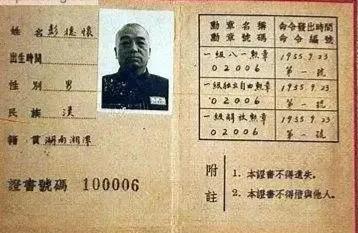 姓名 彭德懷
出生時間
性別 男
民族 漢
籍貫 湖南湘潭
證書號碼 100006
勳章名稱
勳章號碼
命令發出時間
命令編號
一級八一勳章
02006
1955.9.23
第一號
一級獨立自由勳章
02006
1955.9.23
第一號
一級解放勳章
02006
1955.9.23
第一號
附註
1. 本證書不得遺失。
2. 本證書不得借與他人。